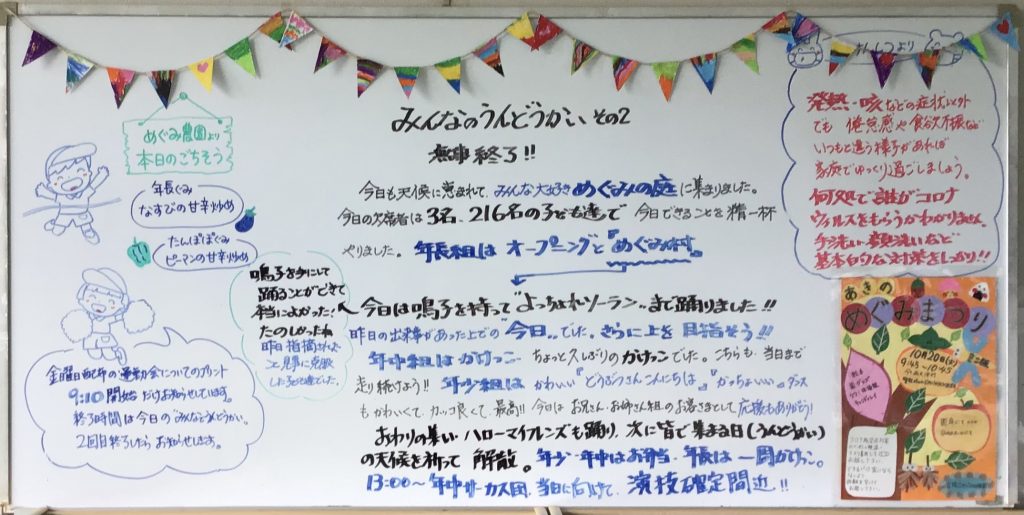 みんなのうんどうかい その2
無事終了!!
今日も天候に恵まれて、みんな大好きめぐみの庭に集まりました。
今日の欠席者は3名、216名の子ども達で今できることを精一杯
やりました。年長組はオープニングと『めぐみ村』。
今日は鳴子を持って"よっちょれソーラン"まで踊りました!!
昨日の出来事があった上での今日。でした。さらに上を目指そう!!
年中組はかけっこ ちょっと久しぶりのかけっこでした。こちらも、当日まで
走り続けよう!! 年少組はかわいい『どうぶつさんこんにちは』『がっちょいい』ダンス
もかわいくて、カッコ良くて、最高!! 今日はお兄さん・お姉さん組のお客さまとして応援もありがとう!
おわりの集い・ハローマイフレンズも踊り、次に皆で集まる日(うんどうかい)
の天候を祈って 解散。年少・年中はお弁当、年長は一同がけっこ。
13:00~年中サーカス団、当日に向けて、演技確定間近!!
めぐみ農園より
本日のごちそう
年長ぐみ
なすびの甘辛炒め
たんぽぽぐみ
ピーマンの甘辛炒め
鳴子を手にして
踊ることができて
本当によかった!
たのしかったね
金曜日配布の運動会についてのプリント
9:10開始だけお知らせしてます。
終了時間は今日の「みんなのうんどうかい」
2回目終了したらお知らせします。
発熱・咳などの症状以外
でも 倦怠感や食欲不振など
いつもと違う様子があれば
家庭でゆっくり過ごしましょう。
何処で誰がコロナ
ウィルスをもらうかわかりません。
手洗い・顔洗いなど
基本的な対策をしっかり!!
あきの
めぐみまつり
10月20日
9:45~10:45